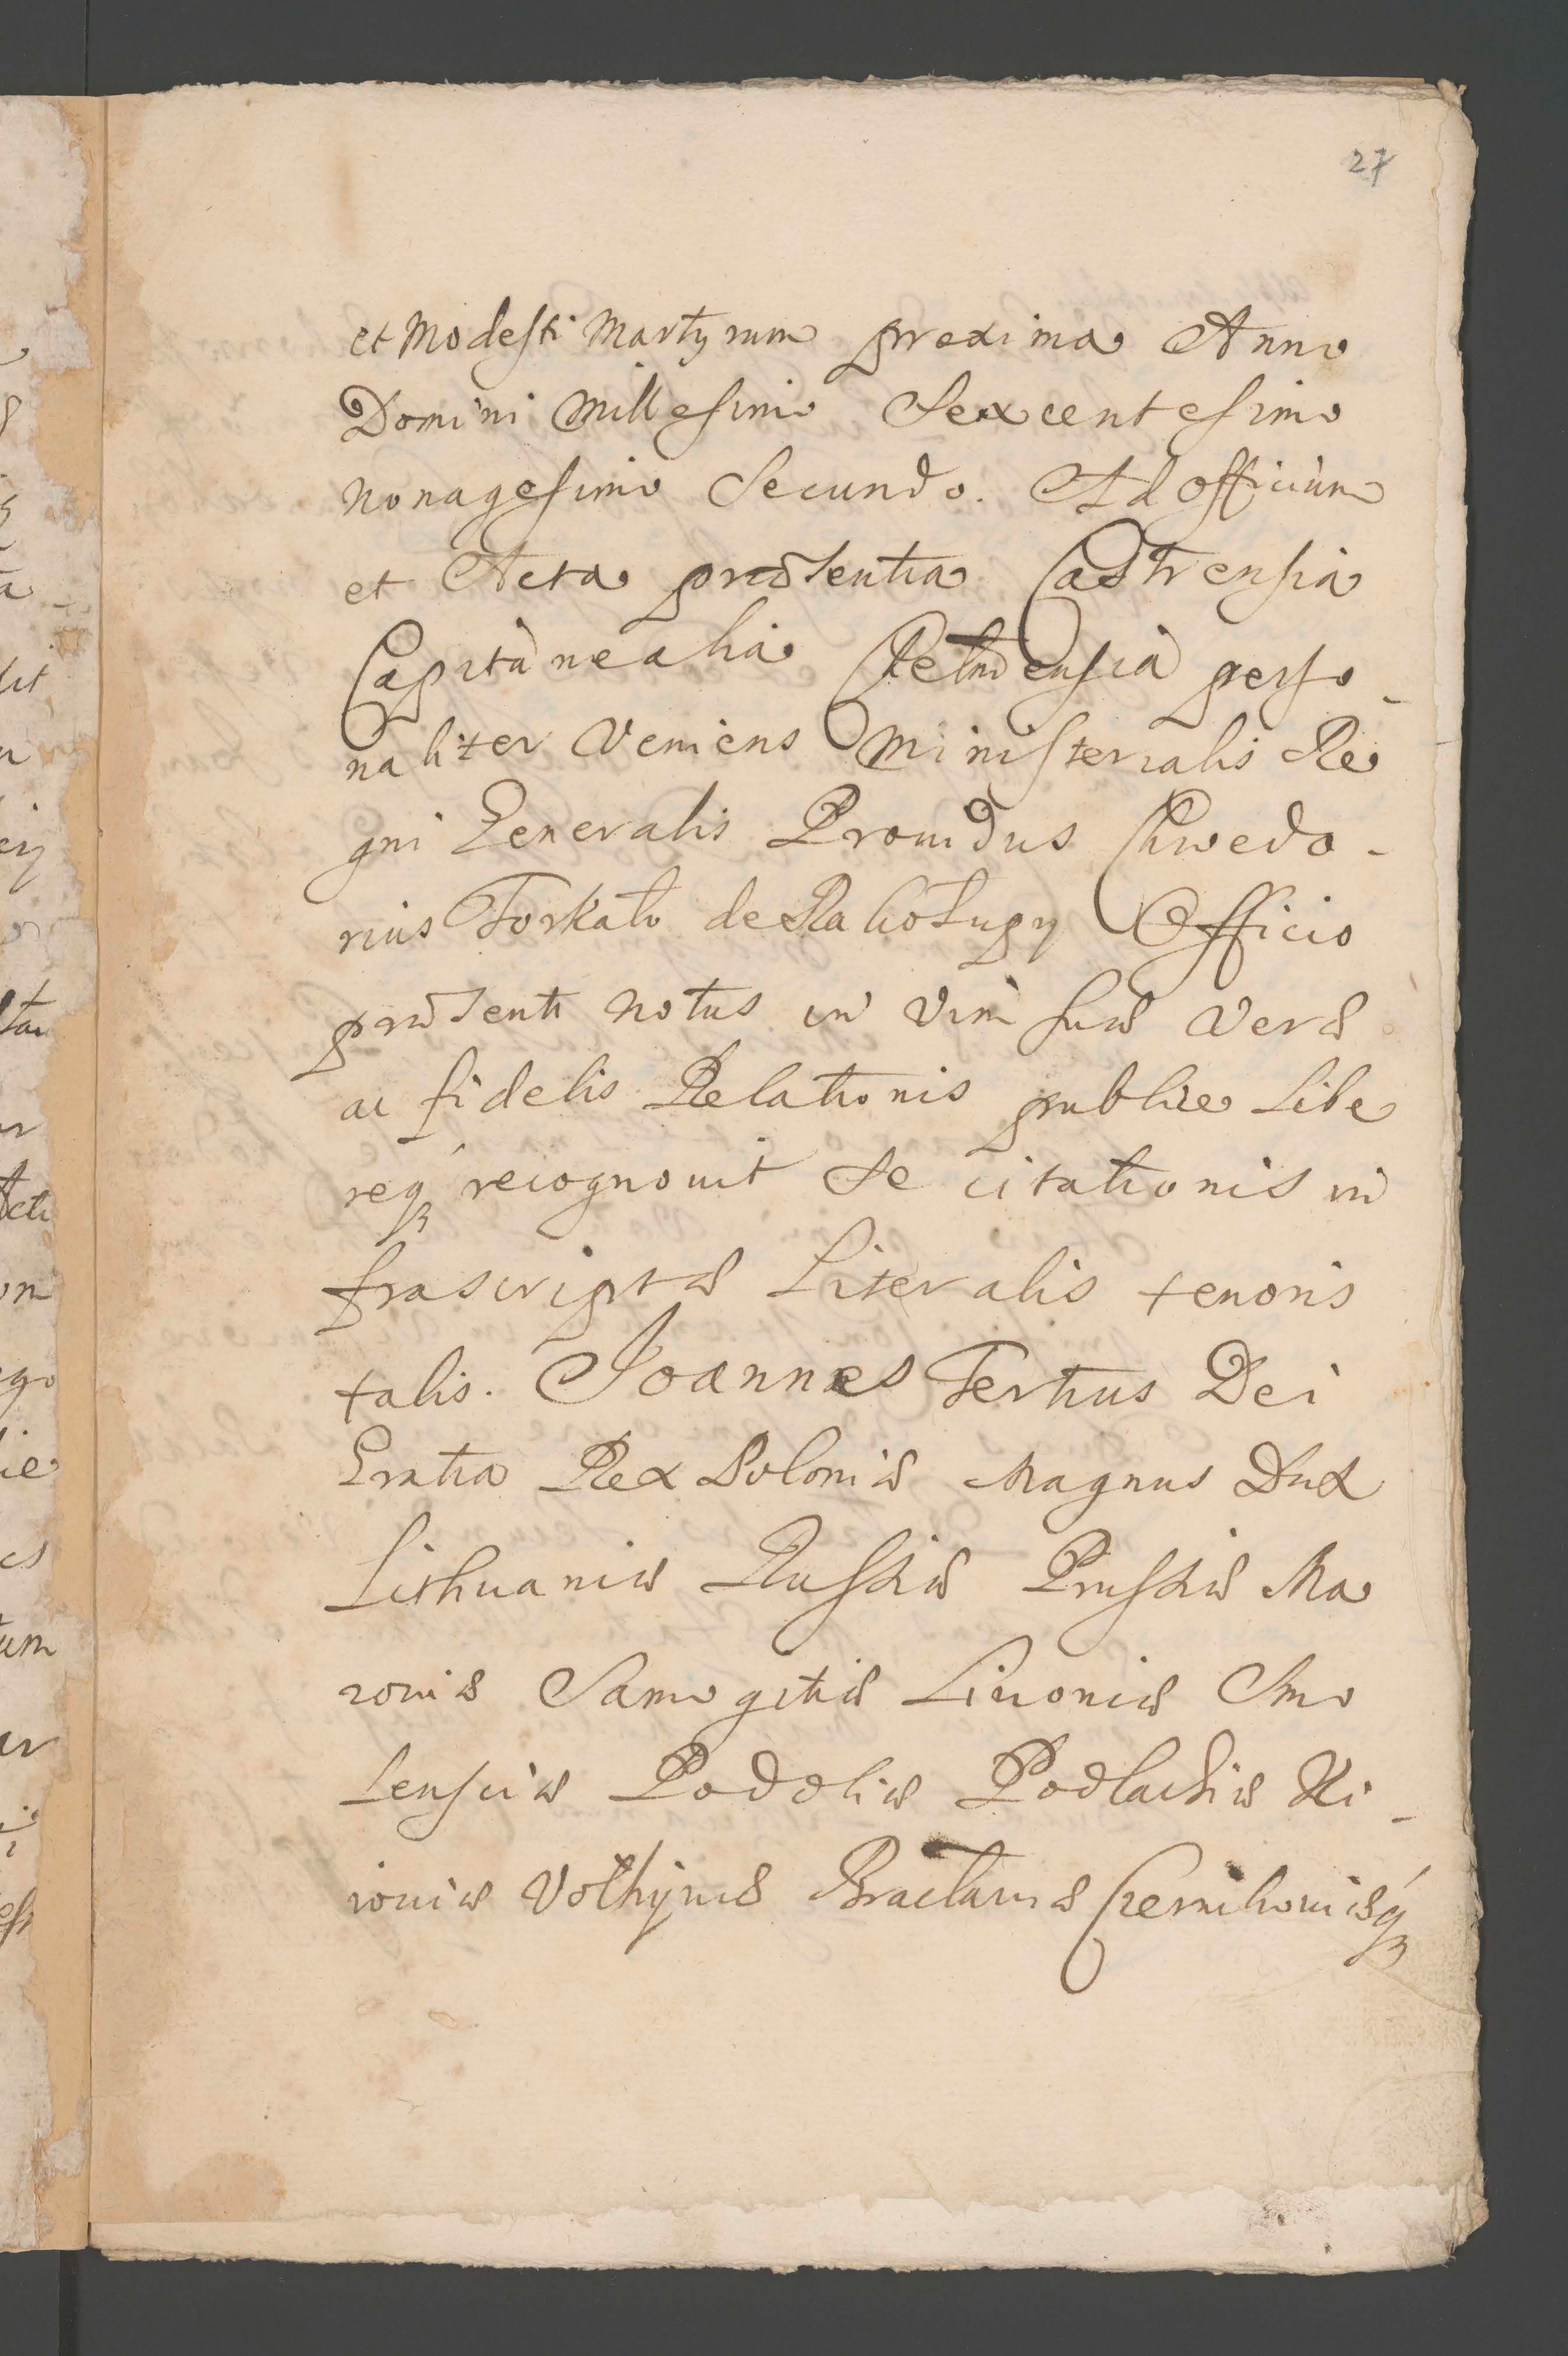 27
et Modesti Martyrum proxima Anno
Domini Millesimo Sexcentesimo
Nonagesimo Secundo. Ad Officium
et Acta præsentia Castrensia
Capitanealia Chelmensia perso-
naliter Veniens Ministerialis Re
gni Generalis Prouidus Chwedo-
rius de Officio
præsenti Notus in Vim suæ Veræ
ac fidelis Relationis publice Libe
reqʒ recognouit Se citationis in
frascriptæ Literalis tenoris
talis. Joannes Tertius Dei
Gratia Rex Poloniæ Magnus Dux
Lithuaniæ Russiæ Prussiæ Ma
zouiæ Samogitiæ Liuoniæ Smo
lensciæ Podoliæ Podlachiæ Ki-
iouiæ Volhyniæ Braclauiæ Czernihouiæqʒ